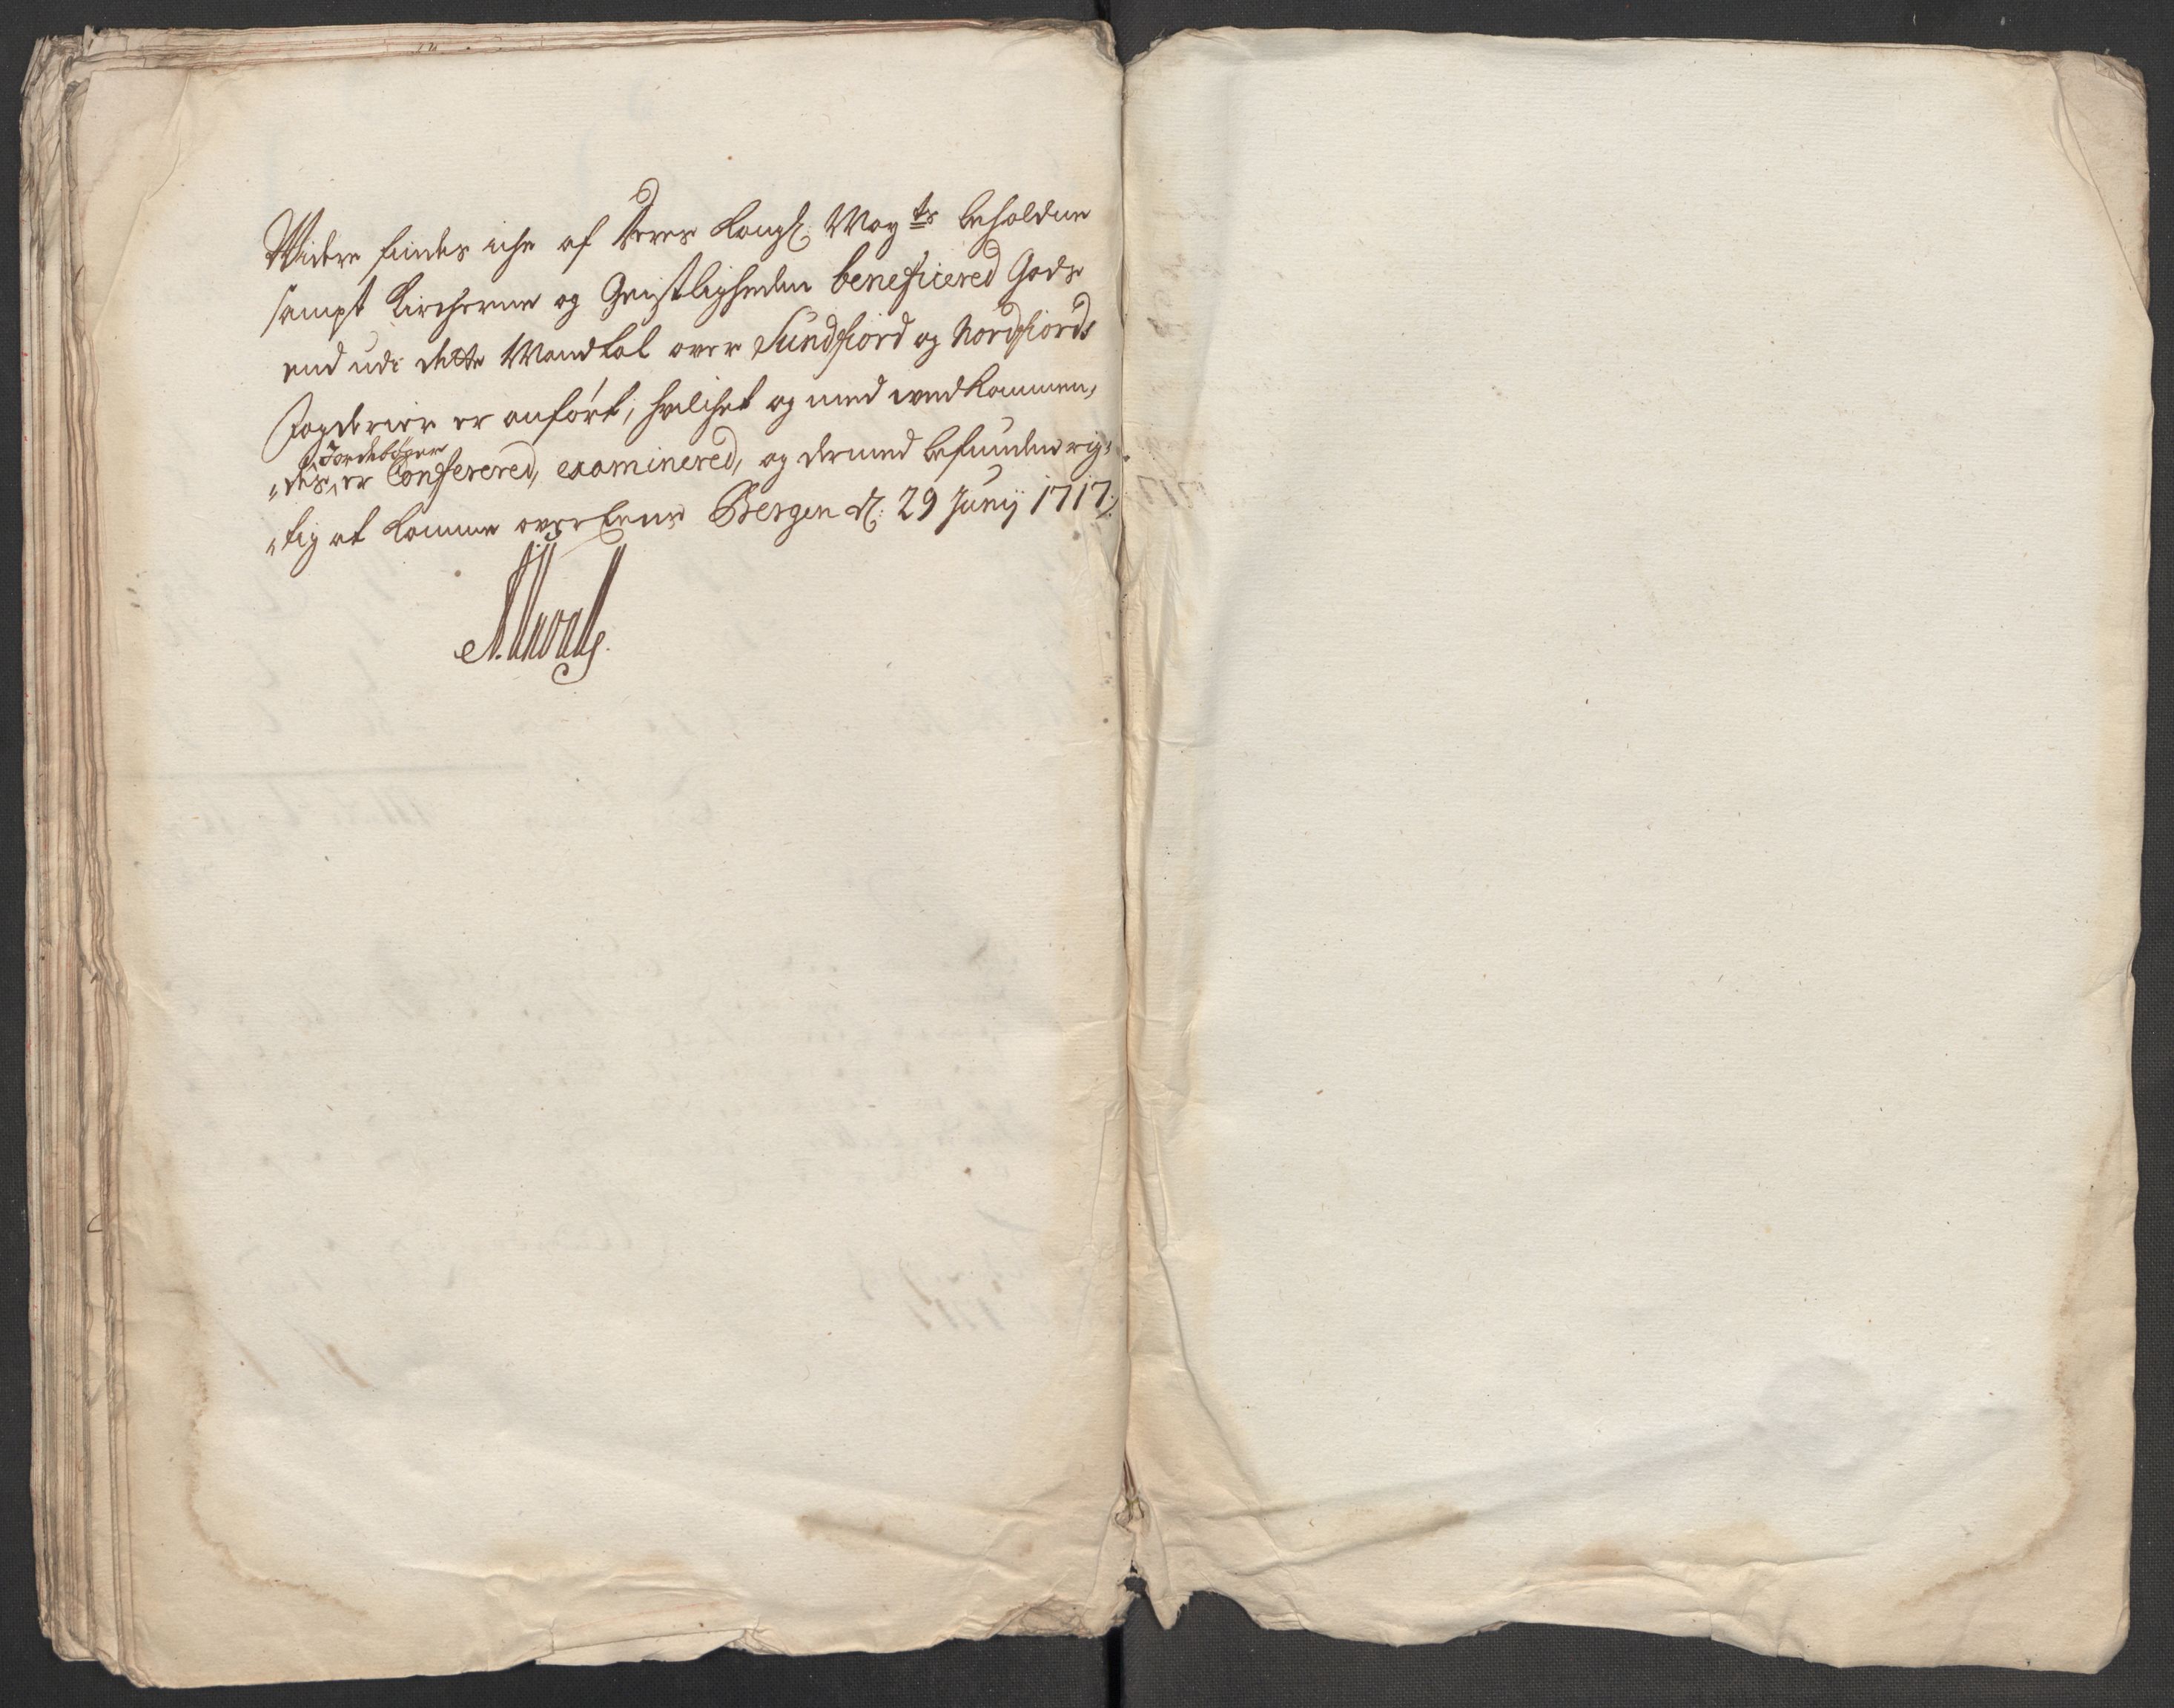 Widere findes iche af Deres Kongl: May<sup>ts</sup> beholdne
sampt Kircherne og Geistligheden beneficered Gods
end udi dette Mandtal over Sundfiord og Nordfiords
Fogderier er anført, hvilchet og med vedkommen,
„des Jordebøger er Confereret, examinered, og dermed befunden rig„
„tig at komme over Eens Bergen d: 29 Junij 1717